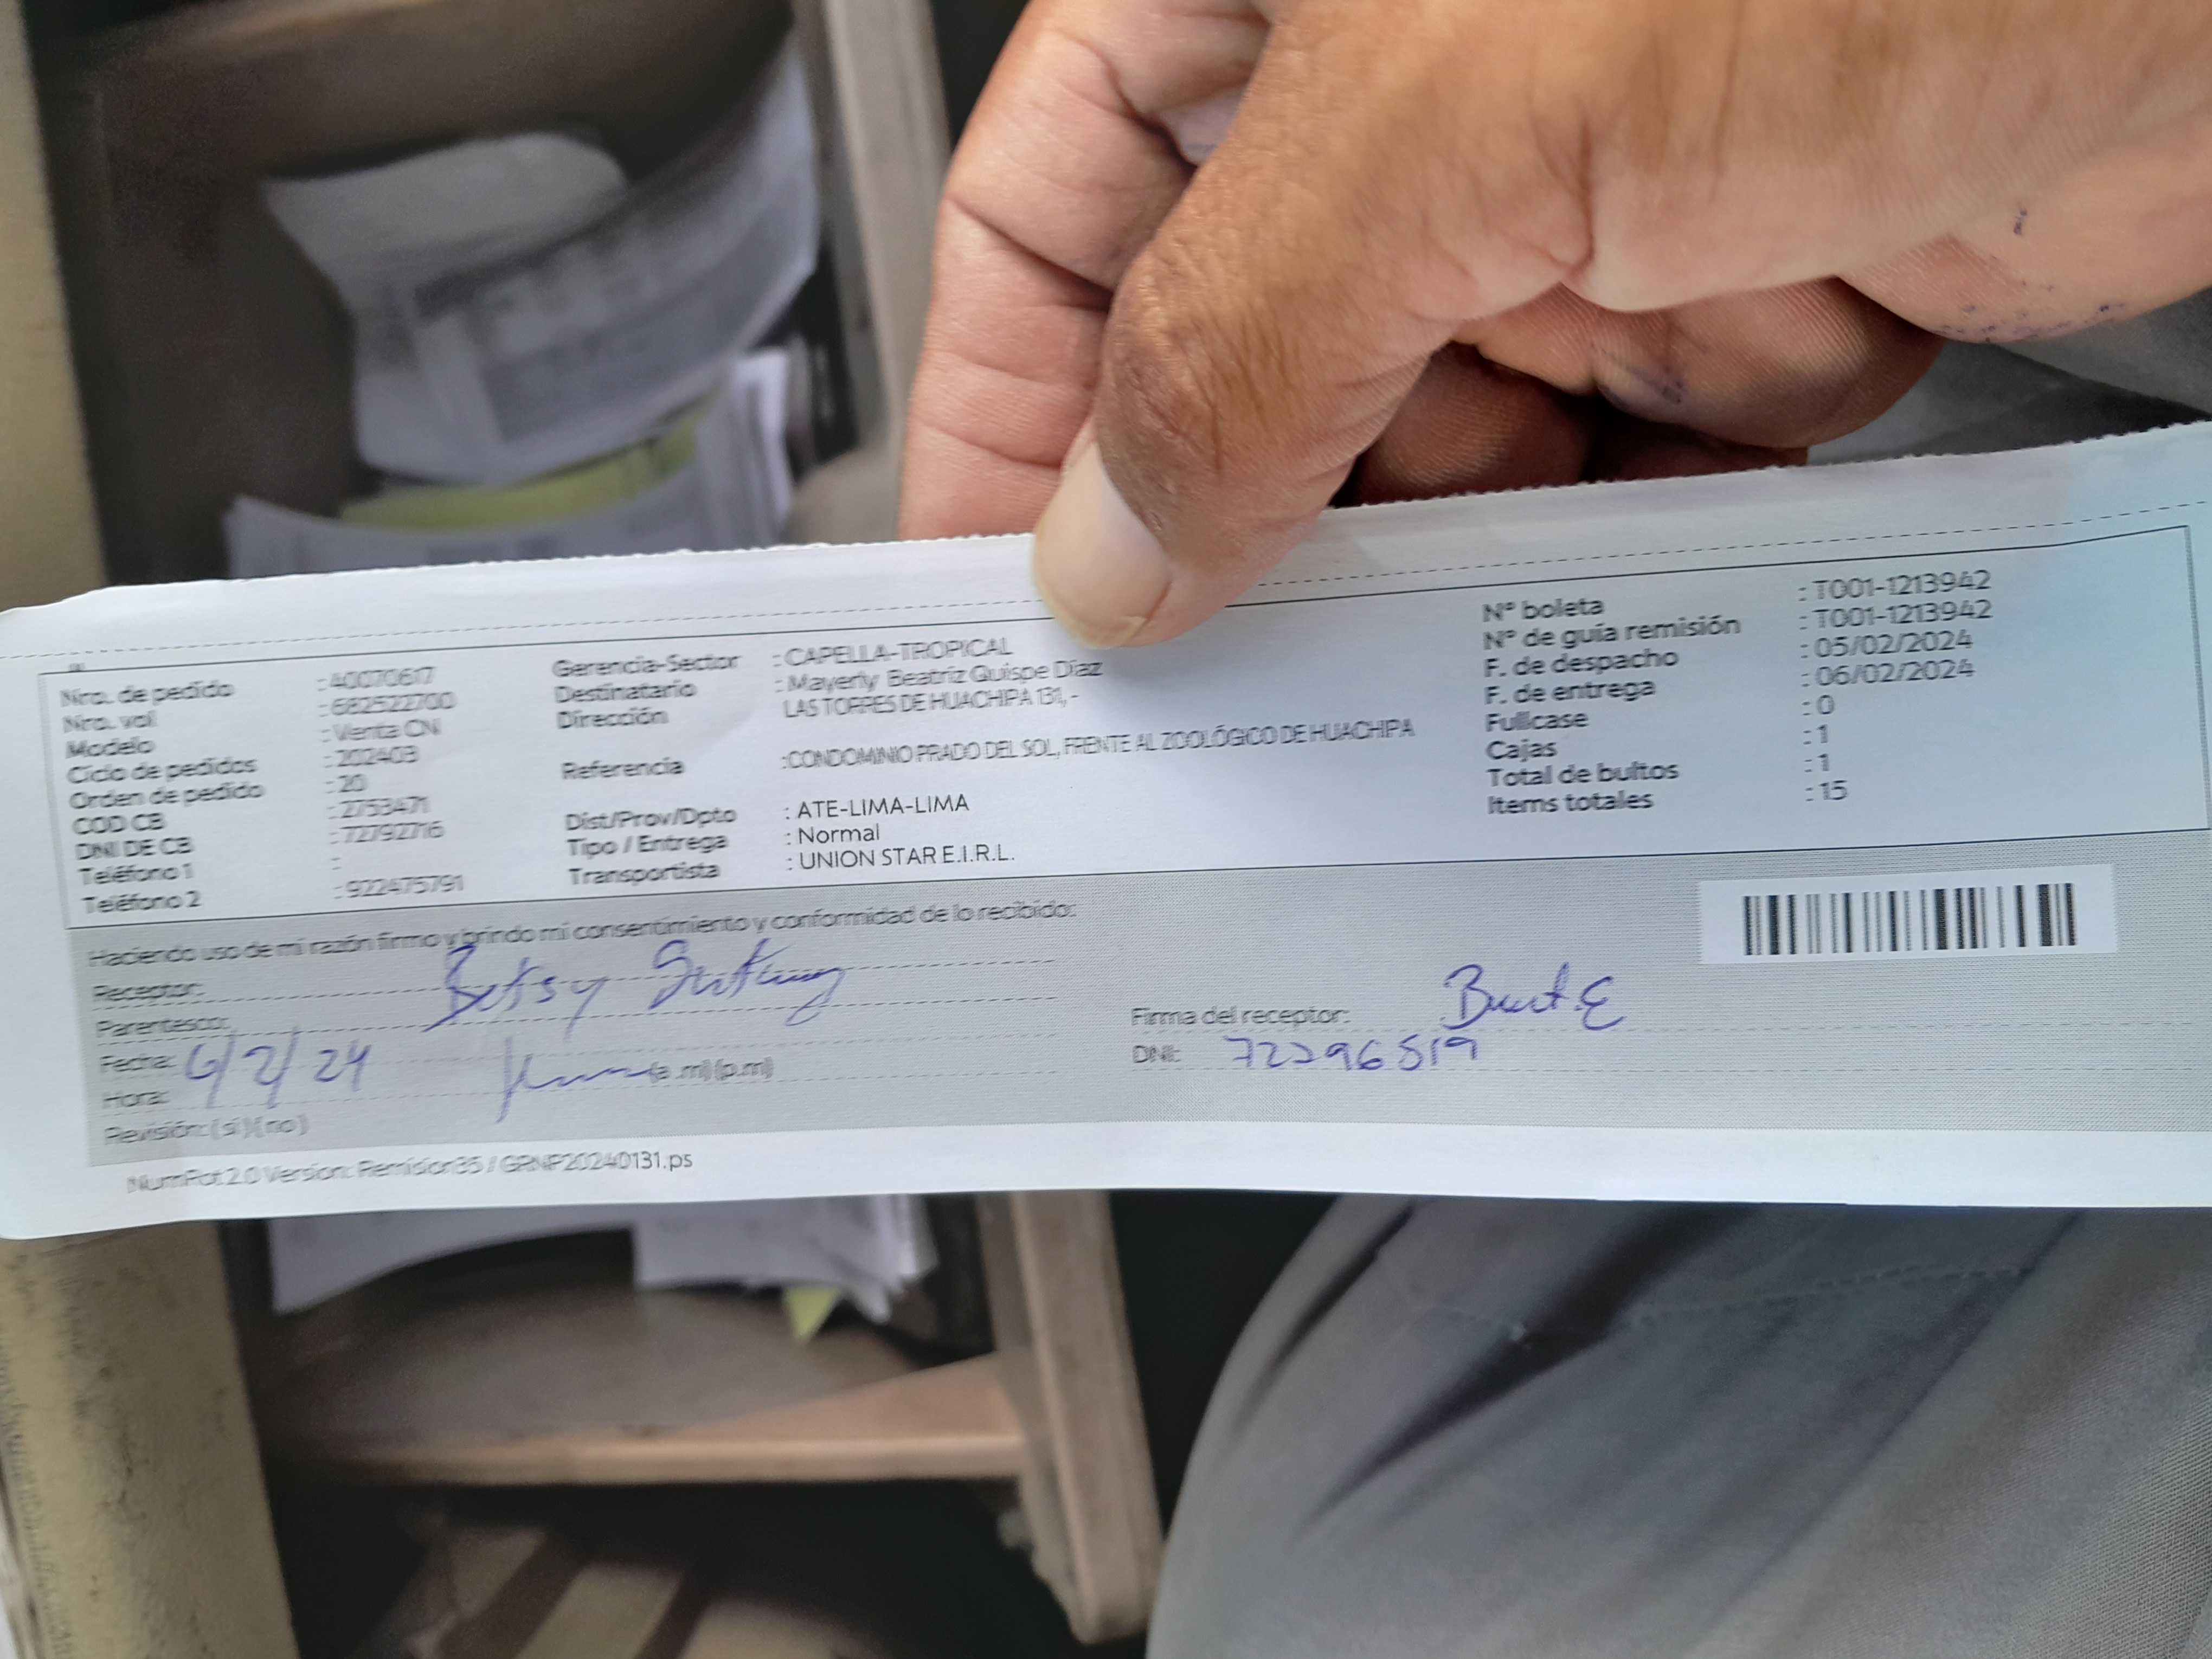 Nro. de pedido : 40070617
Nro. vol : 682522700
Modelo : Venta CN
Ciclo de pedidos : 202403
Orden de pedido : 20
COD CB : 2753471
DNI DE CB : 72792716
Teléfono 1 :
Teléfono 2 : 922475791
Gerencia-Sector : CAPELLA-TROPICAL
Destinatario : Mayerly Beatriz Quispe Díaz
Dirección LAS TORRES DE HUACHIPA 131, -
Referencia :CONDOMINIO PRADO DEL SOL, FRENTE AL ZOOLÓGICO DE HUACHIPA
Dist/Prov/Dpto : ATE-LIMA-LIMA
Tipo / Entrega : Normal
Transportista : UNION STAR E.I.R.L.
N° boleta : T001-1213942
N° de guía remisión : T001-1213942
F. de despacho : 05/02/2024
F. de entrega : 06/02/2024
Fullcase : 0
Cajas : 1
Total de bultos : 1
Items totales : 15
Haciendo uso de mi razón firmo y brindo mi consentimiento y conformidad de lo recibido:
Receptor: Betsy
Parentesco:
Fecha: 6/2/24
Hora: (a .m) (p.m)
Revisión: ( sí ) ( no )
Firma del receptor:
DNI: 72296519
NumRot 2.0 Version: Remision35 / GRNP20240131.ps